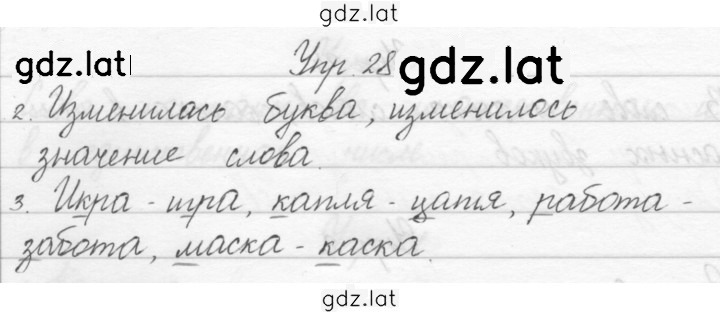 gdz.lat
gdz.lat Упр. 28 gdz.lat
2. Изменилась буква, изменилось
значение слова.
3. Икра - игра, капля - цапля, работа -
забота, маска - каска.
gdz.lat